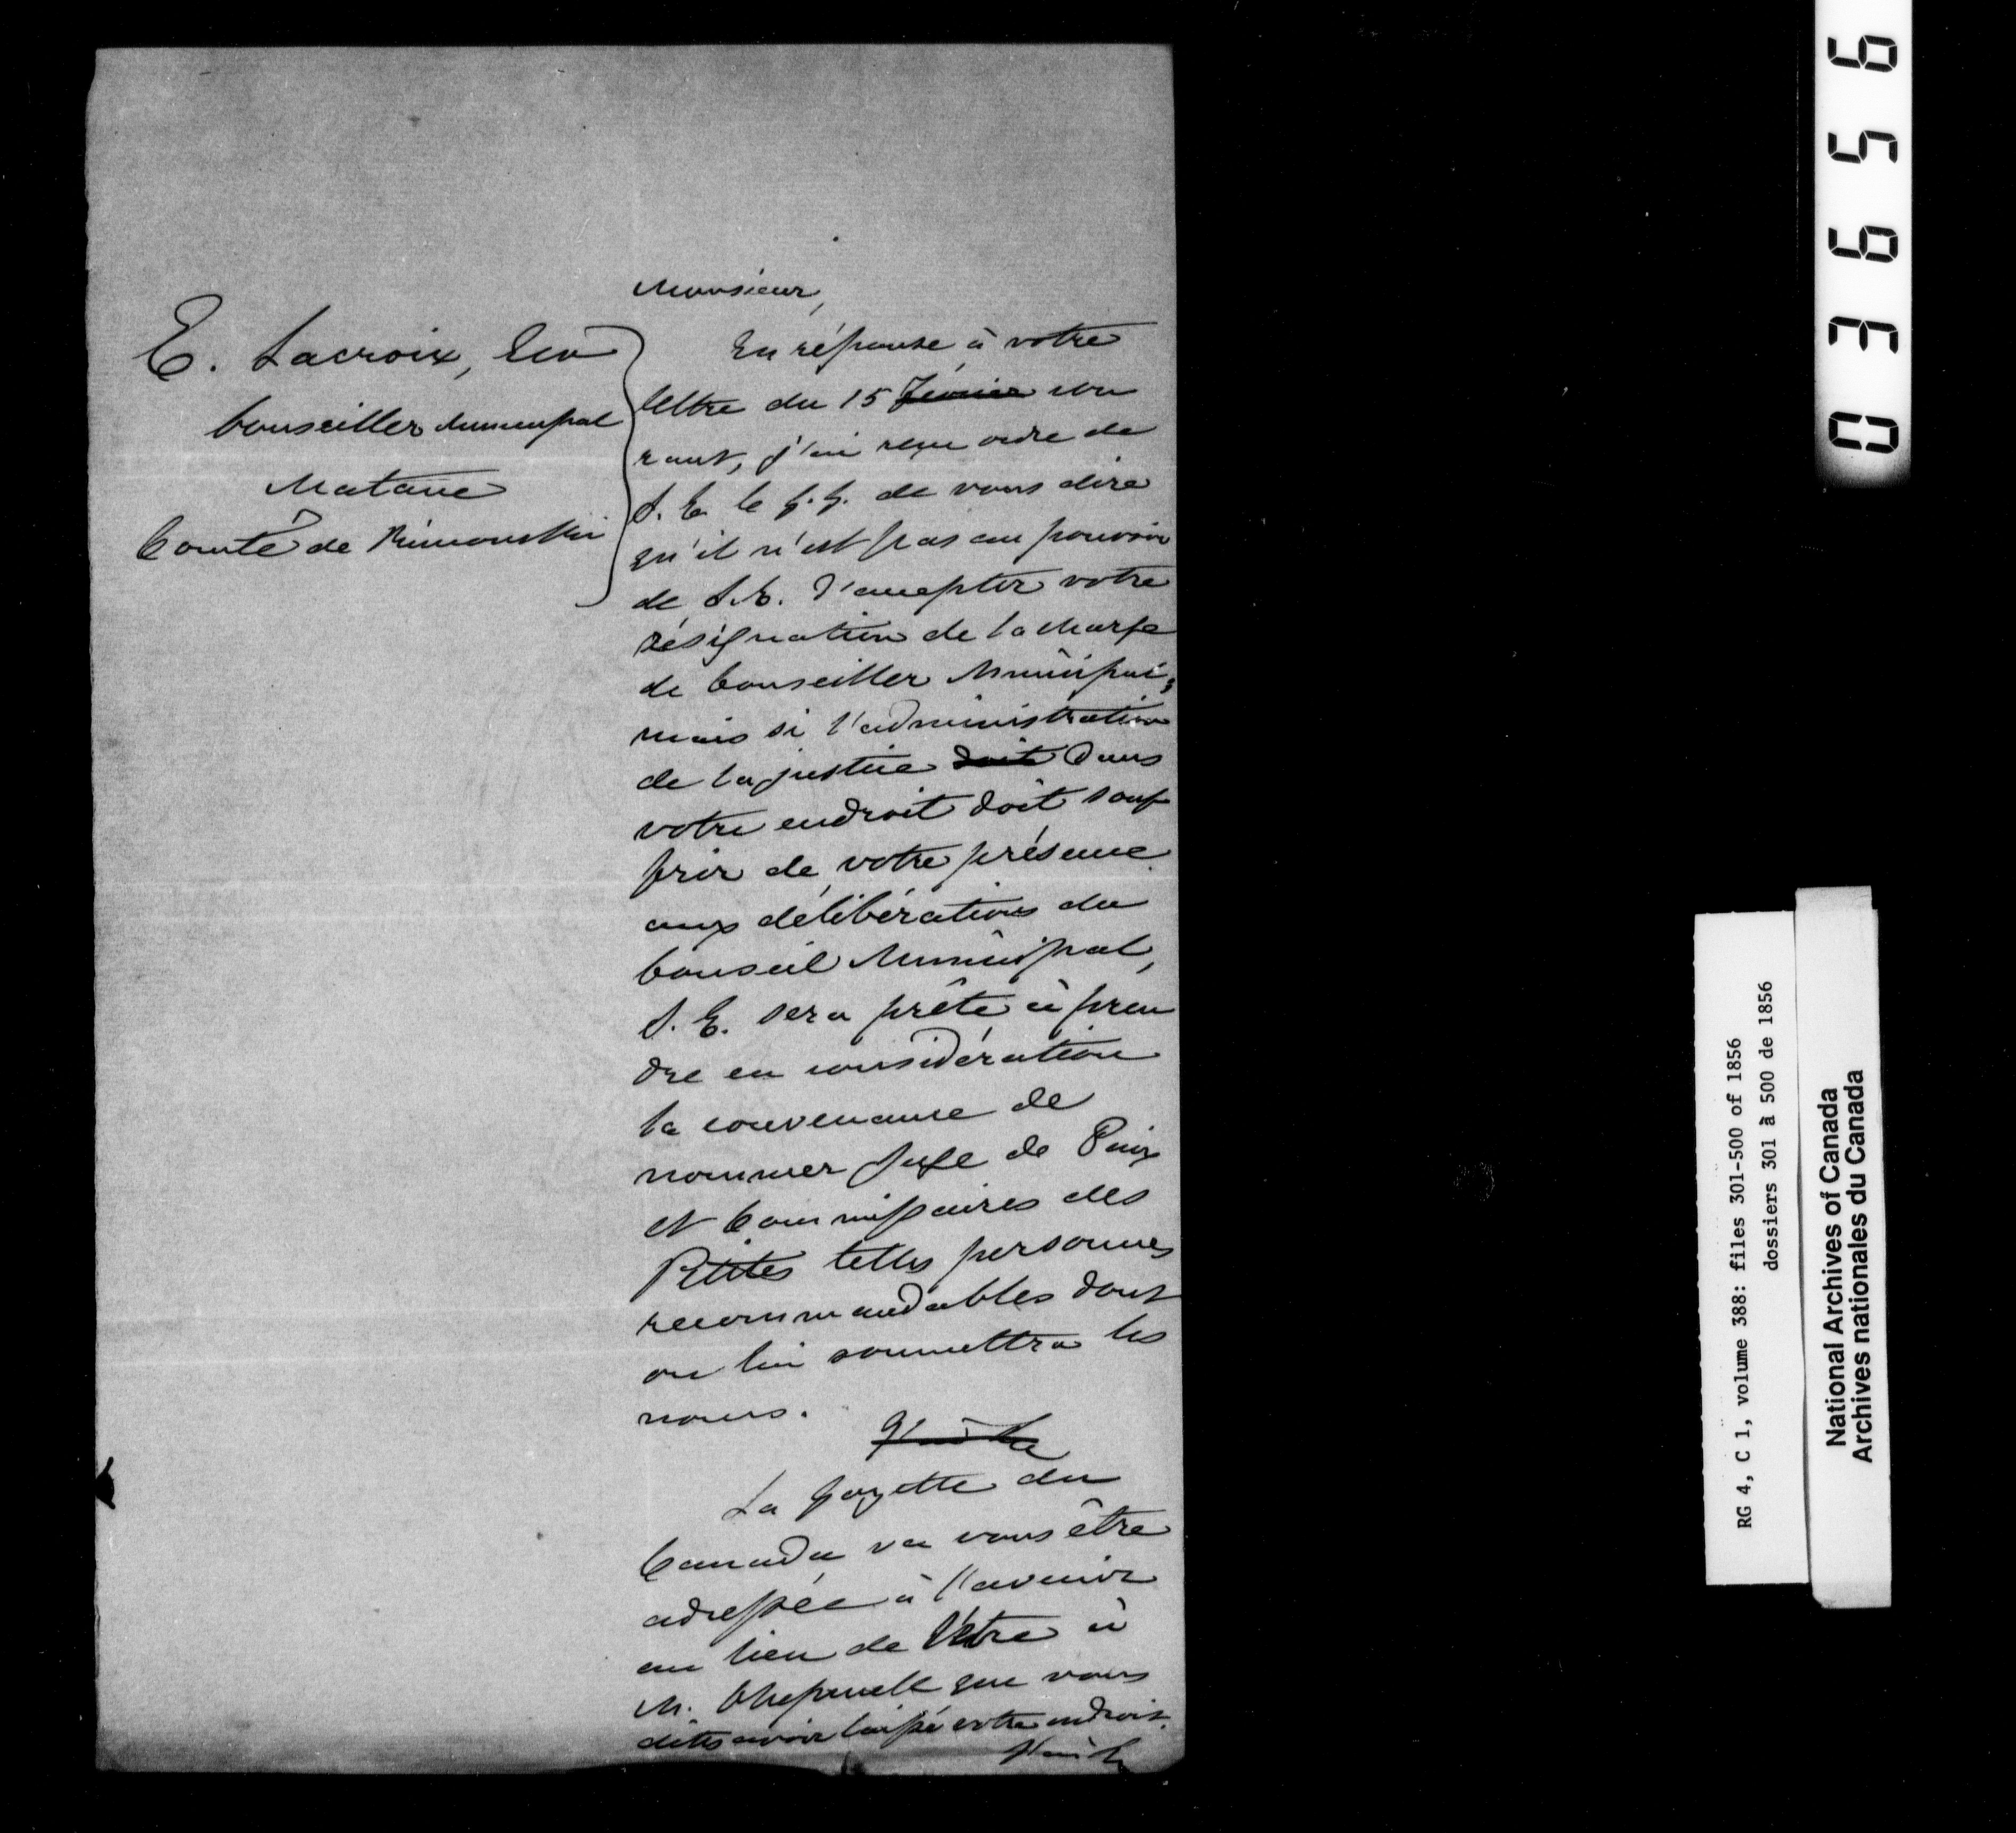 Monsieur,
E. Lacroix, Ecr
Conseiller Municipal
Matane
Comté de Rimouski
En réponse à votre
lettre du 15 Février cou
rant, j'ai reçu ordre de
S. E. le G. G. de vous dire
qu'il n'est pas au pouvoir
de S. E. d'accepter votre
résignation de la charge
de Conseiller Municipal;
mais si l'administration
de la justice doit dans
votre endroit doit souf
frir de votre présence
aux délibérations du
Conseil Municipal,
S. E. sera prête à pren
dre en considération
la convenance de
nommer Juge de Paix
et Commissaires des
Petites telles personnes
recommandables dont
on lui soumettra les
noms.
J'ai l'h
La Gazette du
Canada va vous être
adressée à l'avenir
au lieu de l'être à
M. que vous
dites avoir laissé votre endroit.
J'ai l'h
03656
RG 4, C 1, volume 388: files 301-500 of 1856
dossiers 301 à 500 de 1856
National Archives of Canada
Archives nationales du Canada